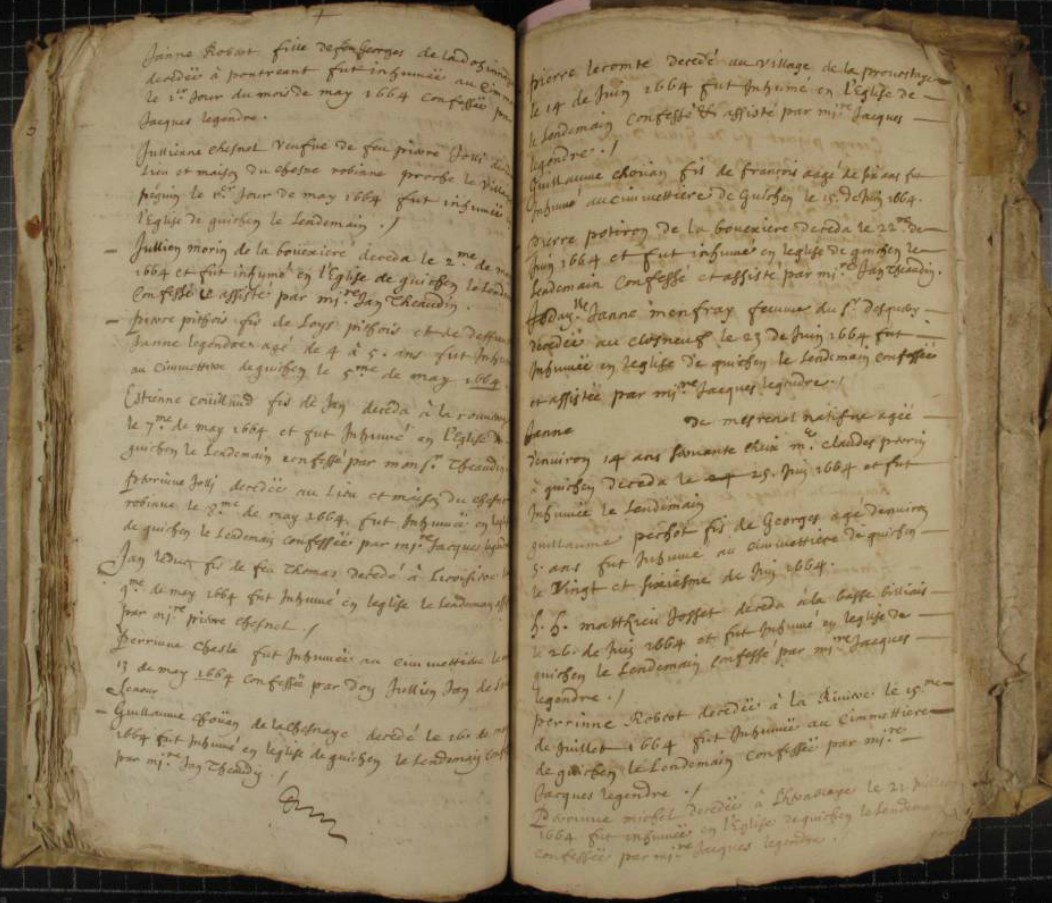 Janne Robert fille de feu Georges de
decedée à pontreant fut inhumée au
le 1er Jour du mois de may 1664 confessée
Jacques legendre.
Jullienne chesnel veufve de feu pierre Jolli
Lieu et maison du chesne robiane proche le village
le Jour de may 1664 fut inhumée
l'Eglise de guichen le Lendemain ./
Jullien morin de la bouexiere deceda le 2me de
1664 et fut inhumé en l'Eglise de guichen le
Confessé et assisté par mi.re Jan Theaudin.
pierre pithois fis de Loys pithois et de deffun
Janne legendre agé de 4 à 5. ans fut Inhu
au cimmettiere de guichen le 5me de may 1664.
Estienne couillaud fis de Jan deceda à la
le 7me de may 1664 et fut Inhumé en l'Eglise de
guichen le Lendemain confessé par mon sr. Theaudin
Perrinne Jolli decedée au Lieu et maison du chesne
robiane le me de may 1664. fut Inhumée en
de guichen le Lendemain confessée par mi.re Jacques
Jan leduc fis de feu Thomas decedé à
9me de may 1664 fut Inhumé en leglise le Lendemain
par mi.re pierre chesnel ./
Perrinne chesle fut Inhumée au cimmettiere le
13 de may 1664 confessée par Dom Jullien Jan de

Guillaume choüan de la chesnaye decedé le 16. de
1664 fut Inhumé en leglise de guichen le Lendemain
par mi.re Jan Theaudin ./
pierre lecomte decedé au village de la prevostaye
le 14 de Juin 1664 fut Inhumé en l'Eglise de
le Lendemain confessé et assisté par mi.re Jacques
legendre ./
Guillaume choüan fis de françois aagé de ans fut
Inhumé au cimmettiere de Guichen le 15. de Juin 1664.
Pierre potiron de la bouexiere deceda le 22me de
Juin 1664 et fut inhumé en leglise de guichen le
Lendemain confessé et assisté par mi.re Jan Theaudin.
Janne menfray femme du Sr.
decedée au le 23 de Juin 1664 fut
Inhumée en leglise de guichen le Lendemain confessée
et assistée par mi.re Jacques legendre ./
Janne de natifve agée
d'environ 14 ans claudes
à guichen deceda le 25. Juin 1664 et fut
Inhumée le Lendemain
guillaume pechot fis de Georges agé d'environ
5. ans fut Inhumé au cimmettiere de guichen
le Vingt et sixiesme de Juin 1664.
h. h. matthieu Josset deceda à la basse
le 26. de Juin 1664 et fut Inhumé en leglise de
guichen le Lendemain confessé par mi.re Jacques
legendre ./
perrinne Robert decedée à la Riviere le 15me
de Juillet 1664 fut Inhumée au Cimmettiere
de guichen le Lendemain confessée par mi.re
Jacques legendre ./
Perrinne michel decedée à le 22. Juillet
1664 fut inhumée en l'Eglise de guichen le Lendemain
confessée par mi.re Jacques legendre.